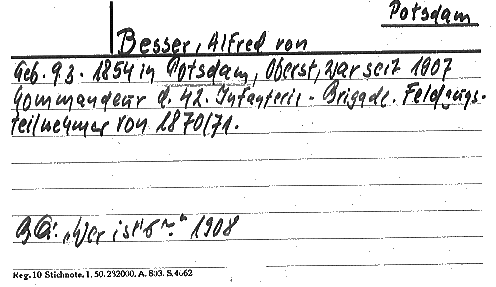 Potsdam
Besser, Alfred von
Geb. 9.3. 1854 in Potsdam, Oberst, war seit 1907
Kommandeur d. 42. Infanterie-Brigade. Feldzugs-
teilnehmer von 1870/71.
B.Q: „Wer ist's?" 1908
Reg. 10 Stichnote. 1. 50. 232000. A. 803. S. 4662